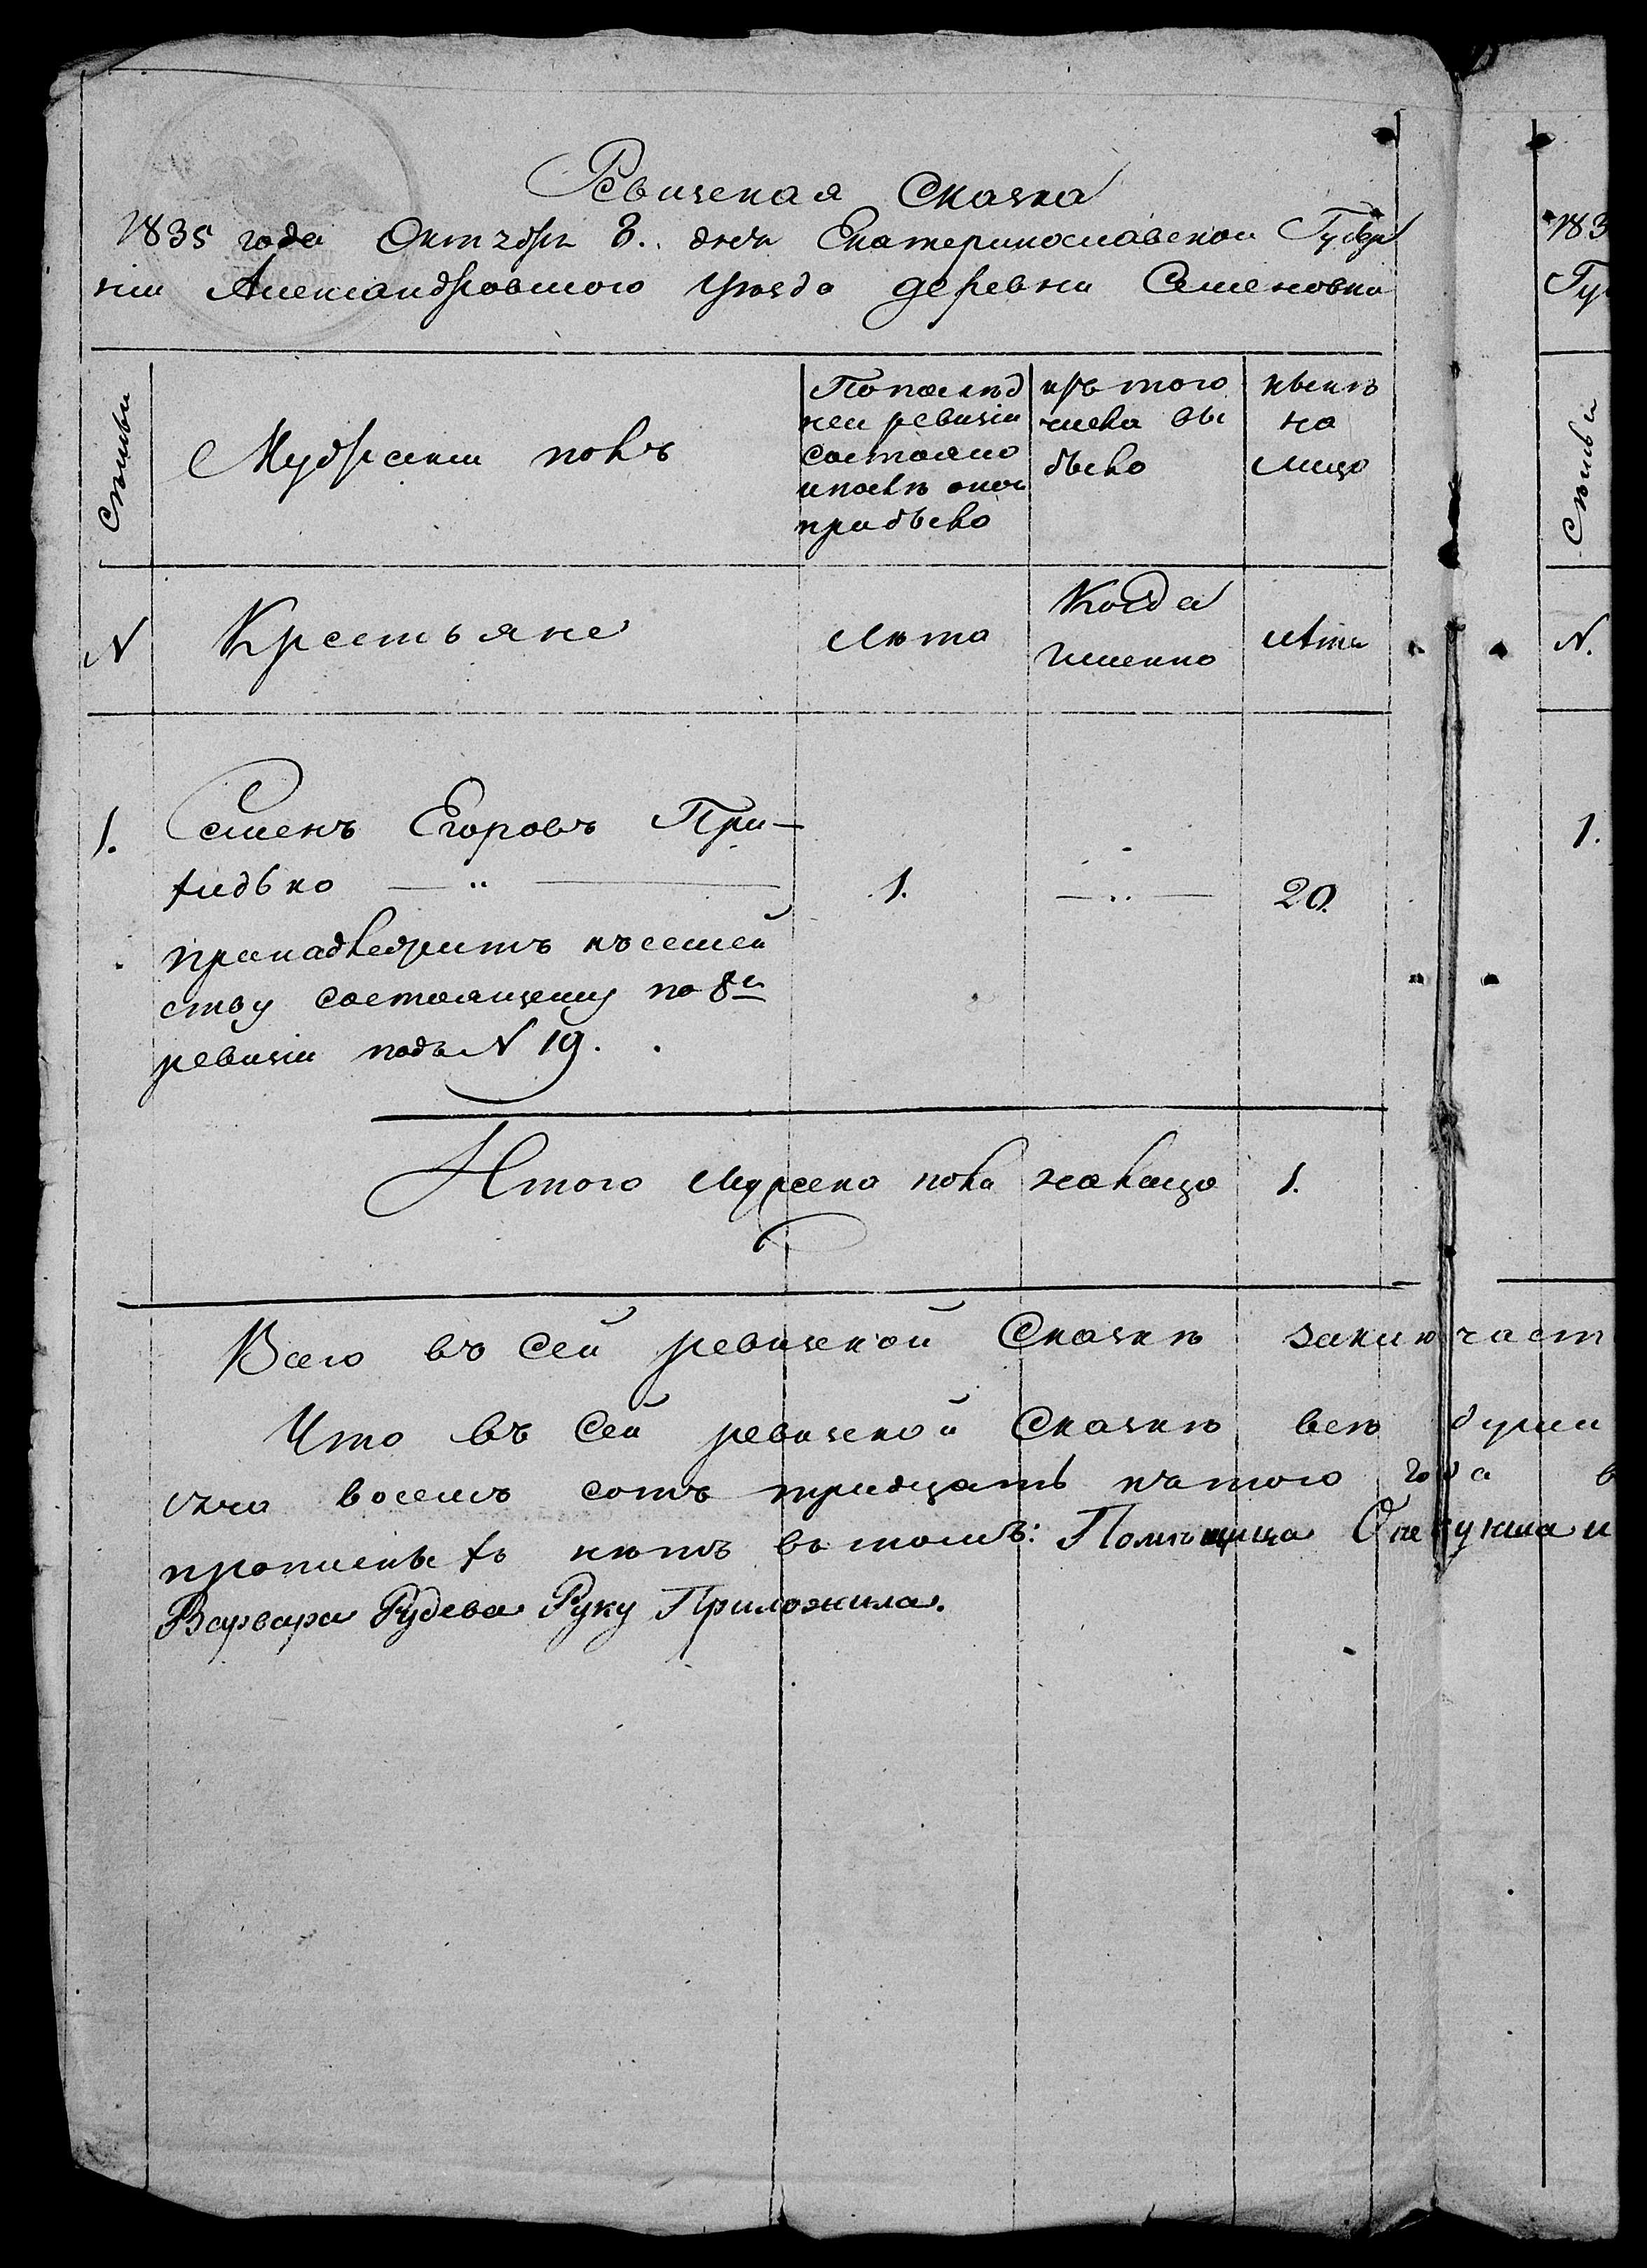 Ревизская Сказка
1835 года Октября 8. дня Екатеринославской Губер
ніи Александровского Уѣзда деревни Семеновки
Семьи
Мужескій полъ
По послѣд
ней ревизіи
состояло
и послѣ оной
прибыло
изъ того
числа вы
было
нынѣ
на
лицо
N
Крестьяне
Лѣта
Когда
Именно
Лѣта
1.
Семенъ Егоровъ При-
тидько
1.
20.
принадлежитъ къ семей
ству состоящему по 8й
ревизіи подъ N 19.
Итого Мужеска пола налицо 1.
Всего въ сей ревизской Сказкѣ заключает
Что въ сей ревизской Сказкѣ всѣ души
сяча восемь сотъ тридцать пятого года в
прописныхъ нѣтъ въ томъ: Помѣщица Опекунша и
Варвара Рудева Руку Приложила.
183
Гу
Семьи
N.
1.